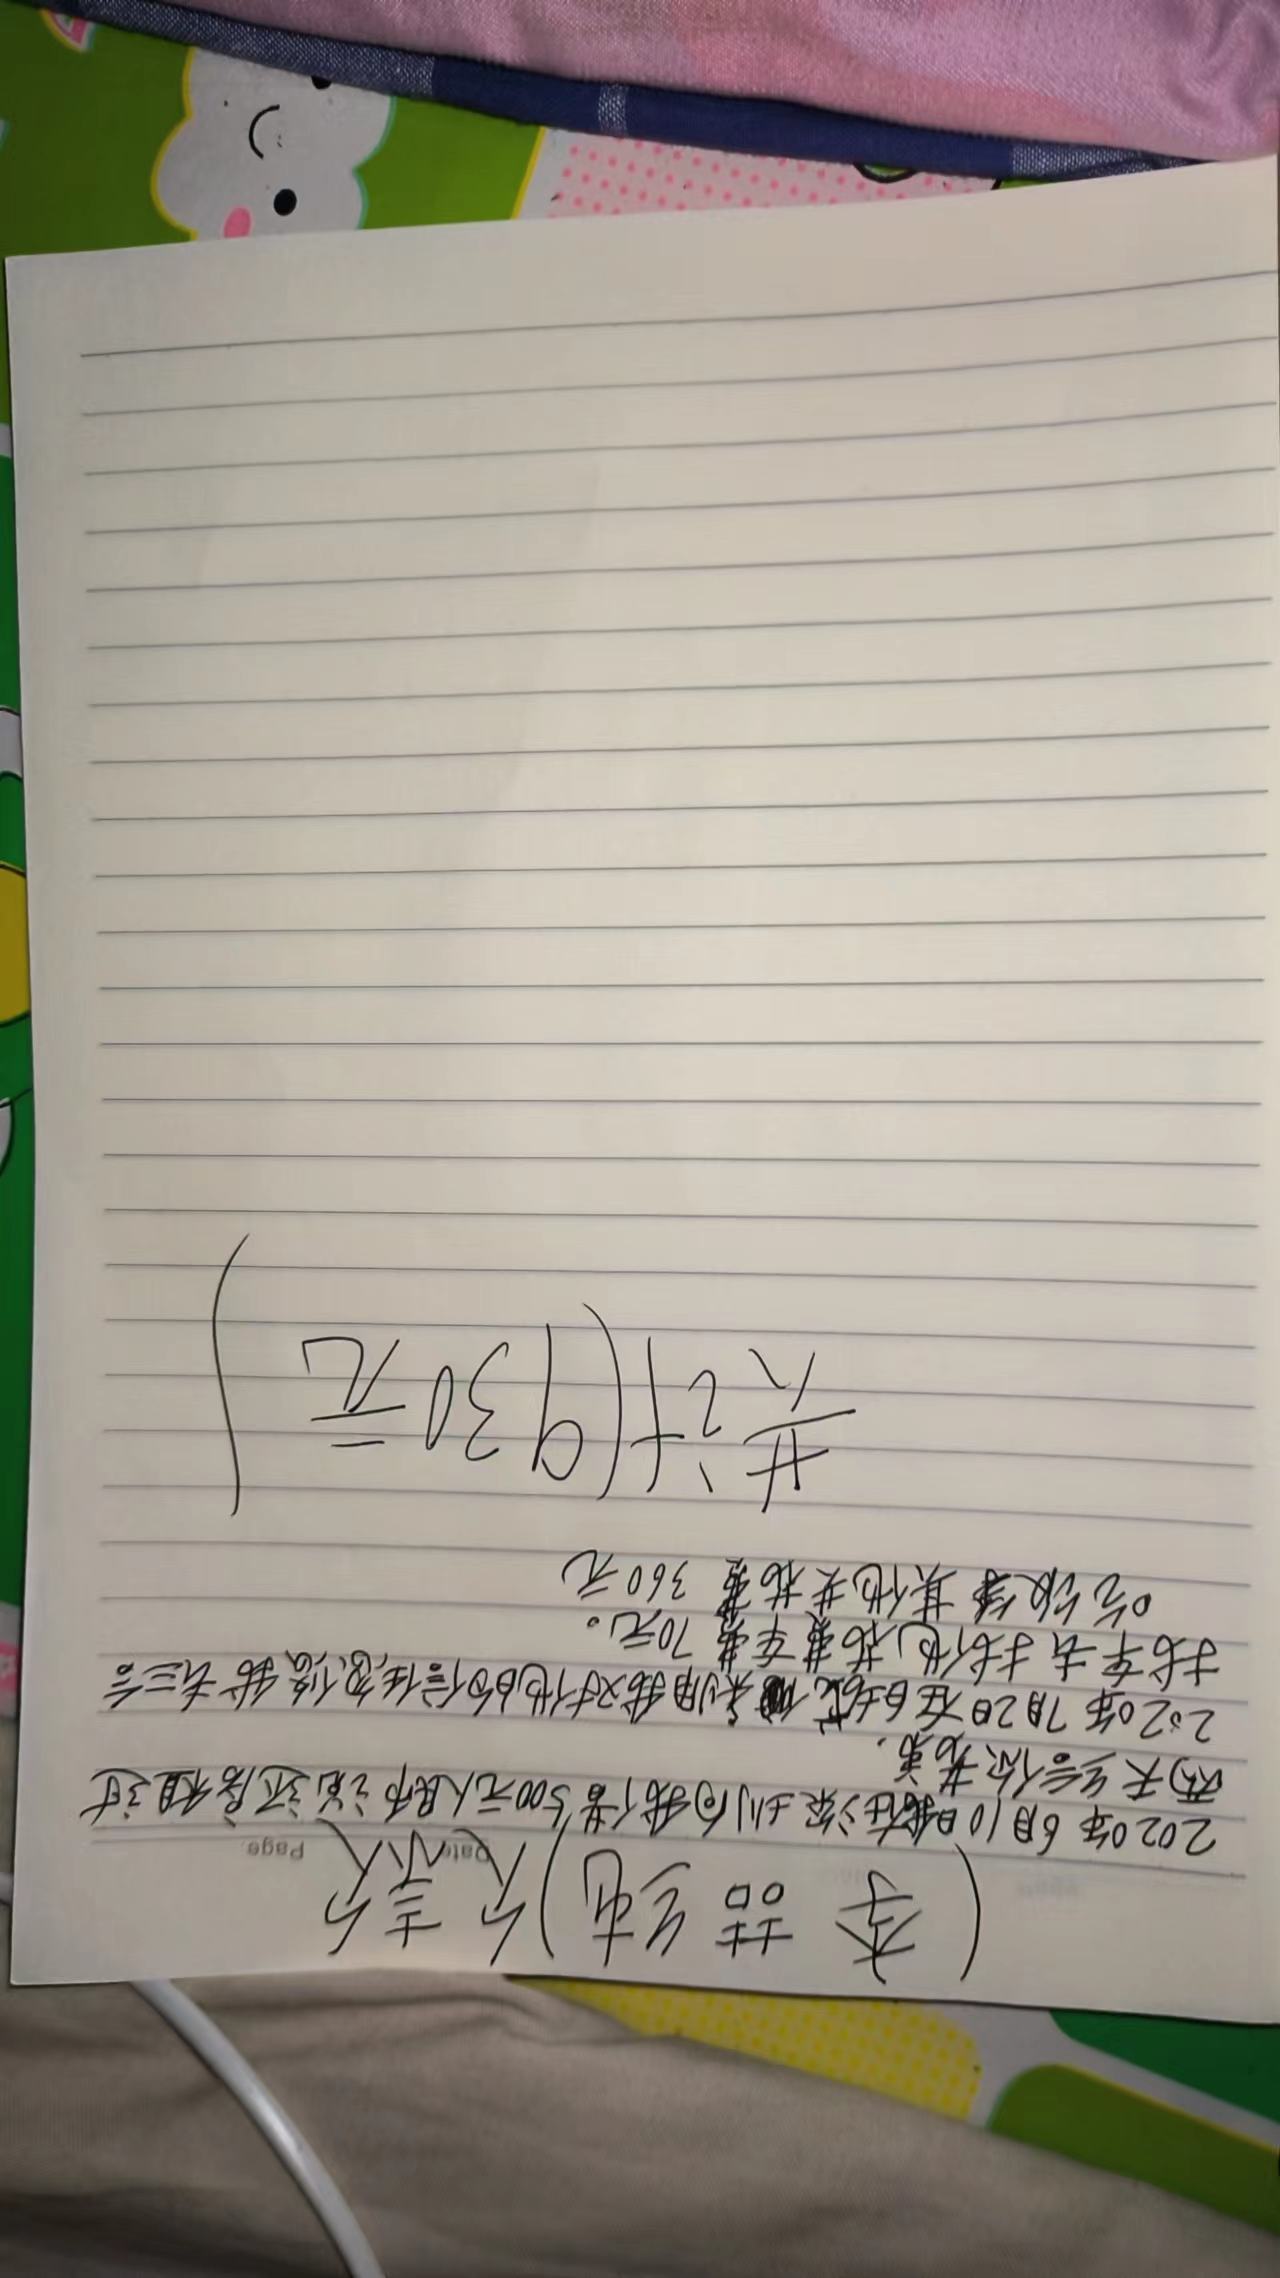 (李喆纯)欠款
Date Page
2020年6月10日我在深圳向我借500元人民币说还房租过
两天给你老弟.
2020年7月2日在白城 利用我对他的信任忽悠我去三合
找车去找他花费车费70元。
吃饭等其他共花费360元
共计(930元)